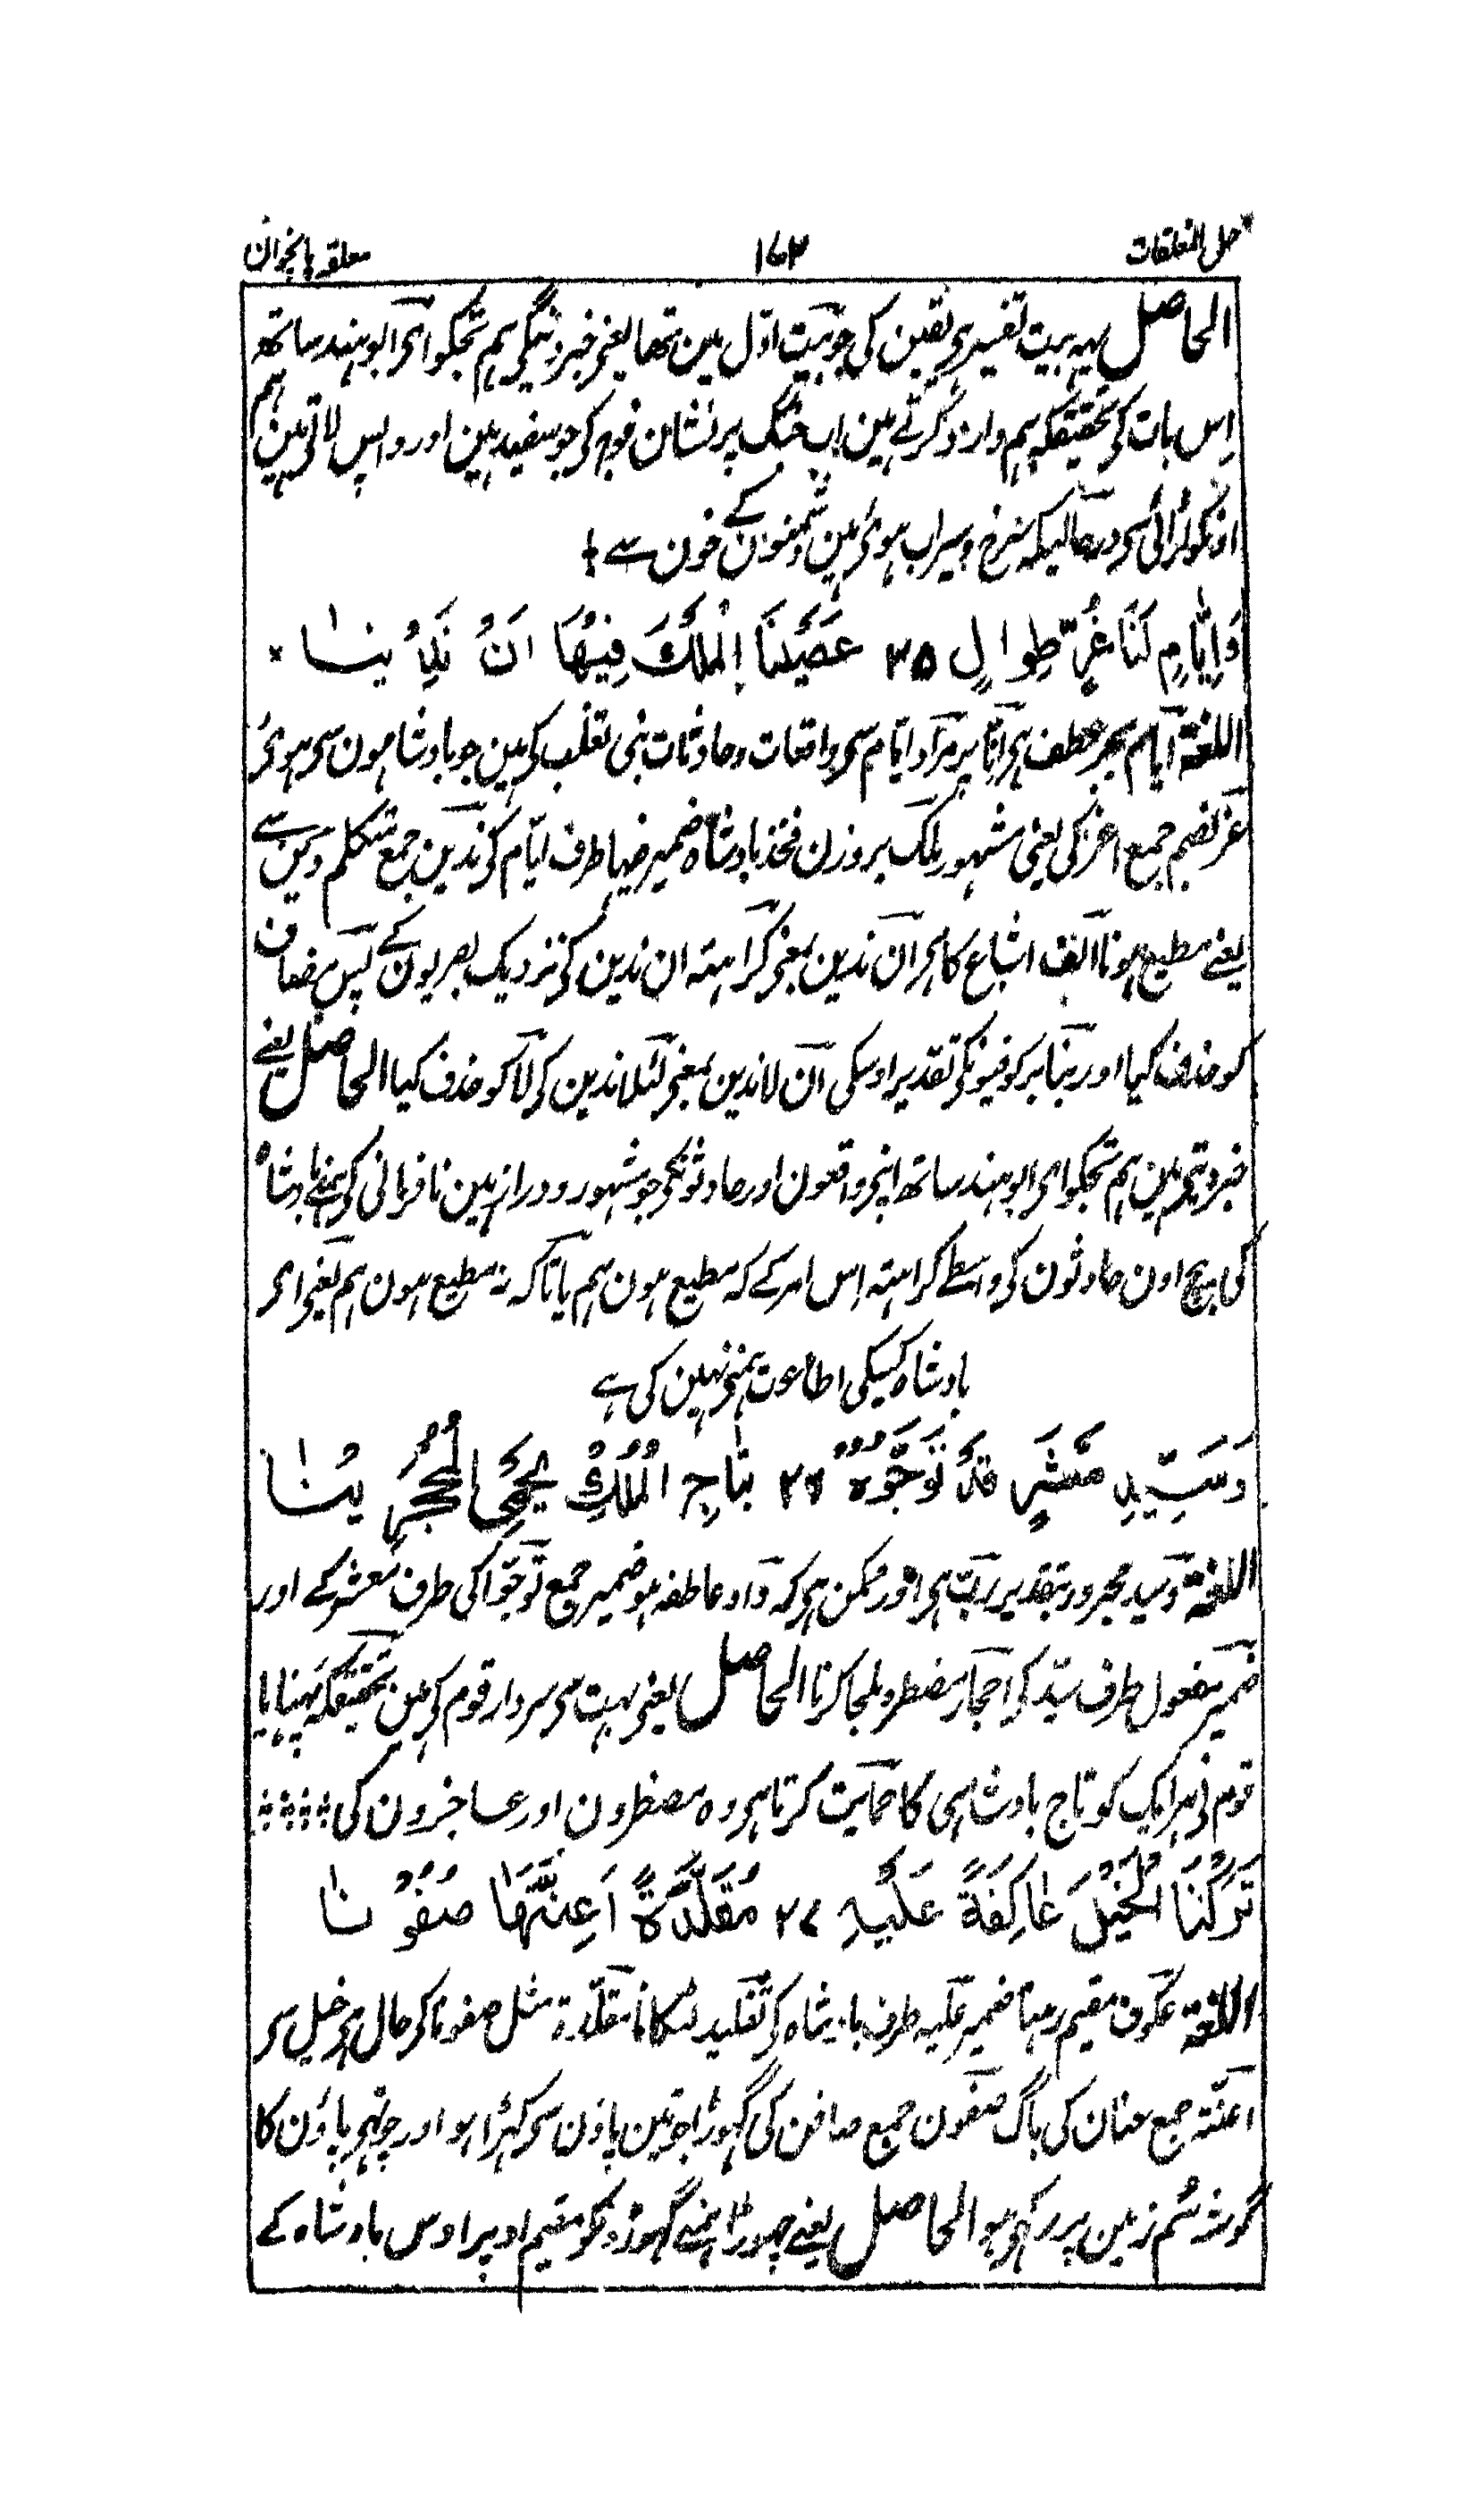 حل المعلقات ۱۶۲ معلقہ پانچوان
الحاصل یہہ بیت تفسیر ہی یقین کی جو بیت اوّل مین تھا یعنی خبر دینگی ہم تجکو ای ابو ہند ساتھہ
اِس بات کی تحقیقکہ ہم وارد کرتے ہین اب جنگ پر نشان فوج کی جو سفید ہین اور واپس لاتی ہین ہم
اونکو لڑائی سی درحالیکہ سرخ و سیراب ہوئی ہین دشمنون کے خون سے
وَاَیَّامٍ لَنَا غُرٍّ طِوَالٍ ۲۵ عَصَیْنَا الْمَلْكَ فِیْهَا اَنْ نَدِیْنَا
اللغة ایام بجر عطف ہی انا پر مراد ایام سی واقعات و حادثات بنی تغلب کی ہین جو بادشاہون سی ہوئی
غر بضم جمع اغر کی یعنی مشہور ملک بروزن فخذ بادشاہ ضمیر فیہا طرف ایام کی ندین جمع متکلم دین سے
یعنے مطیع ہونا الف اشباع کا ہی ان ندین بمعنی کراہتہ ان ندین کی نزدیک بصریون کے پس مضاف
کو حذف کیا اور بنا بر کوفیونکی تقدیر اوسکی ان لاندین بمعنی لئلا ندین کی لا کو حذف کیا الحاصل یعنے
خبر دیتی ہین ہم تجکو ای ابو ہند ساتھہ اپنی واقعون اور حادثونکی جو مشہور و دراز ہین نافرمانی کی ہمنے بادشاہ
کی بیچ اون حادثون کی واسطے کراہتہ اس امر کے کہ مطیع ہون ہم یا تاکہ نہ مطیع ہون ہم یعنی ای
بادشاہ کسیکی اطاعت ہمنی نہین کی ہے
وَسَیِّدِ مَعْشَرٍ قَدْ تَوَّجُوْهُ ۲۶ بِتَاجِ الْمُلْكِ یَحْمِی الْمُحْجَرِیْنَا
اللغة وسید مجرور بتقدیر رب ہی اور ممکن ہی کہ واو عاطفہ ہو ضمیر جمع توجوا کی طرف معشر کے اور
ضمیر مفعول طرف سید کی احجار مضطر و ملجا کرنا الحاصل یعنی بہت سی سردار قوم کی ہین تحقیقکہ پہنایا
قوم نی ہر ایک کو تاج بادشاہی کا حمایت کرتا ہی وہ مضطرون اور عاجزون کی
تَرَكْنَا الْخَیْلَ عَاكِفَةً عَلَیْهِ ۲۷ مُقَلَّدَةً اَعِنَّتَهَا صُفُوْنَا
اللغة عکوف مقیم رہنا ضمیر علیہ طرف بادشاہ کی تقلید لٹکانا مقلدۃ مثل صفونا کی حال ہی خیل سی
اعنۃ جمع عنان کی باگ صفون جمع صافن کی گہوڑا جو تین پاؤن سی کہڑا ہو اور چوتہی پاؤن کا
گوشہ سم زمین پر رکہی ہو الحاصل یعنے چہوڑا ہمنے گہوڑونکو مقیم اوپر اوس بادشاہ کے